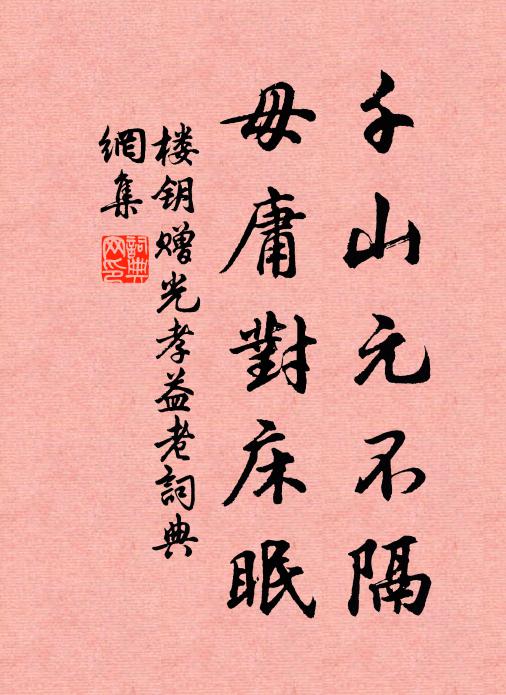 千山元不隔
毋庸對床眠
楼钥赠光孝益老詞典
網集
詞典網印